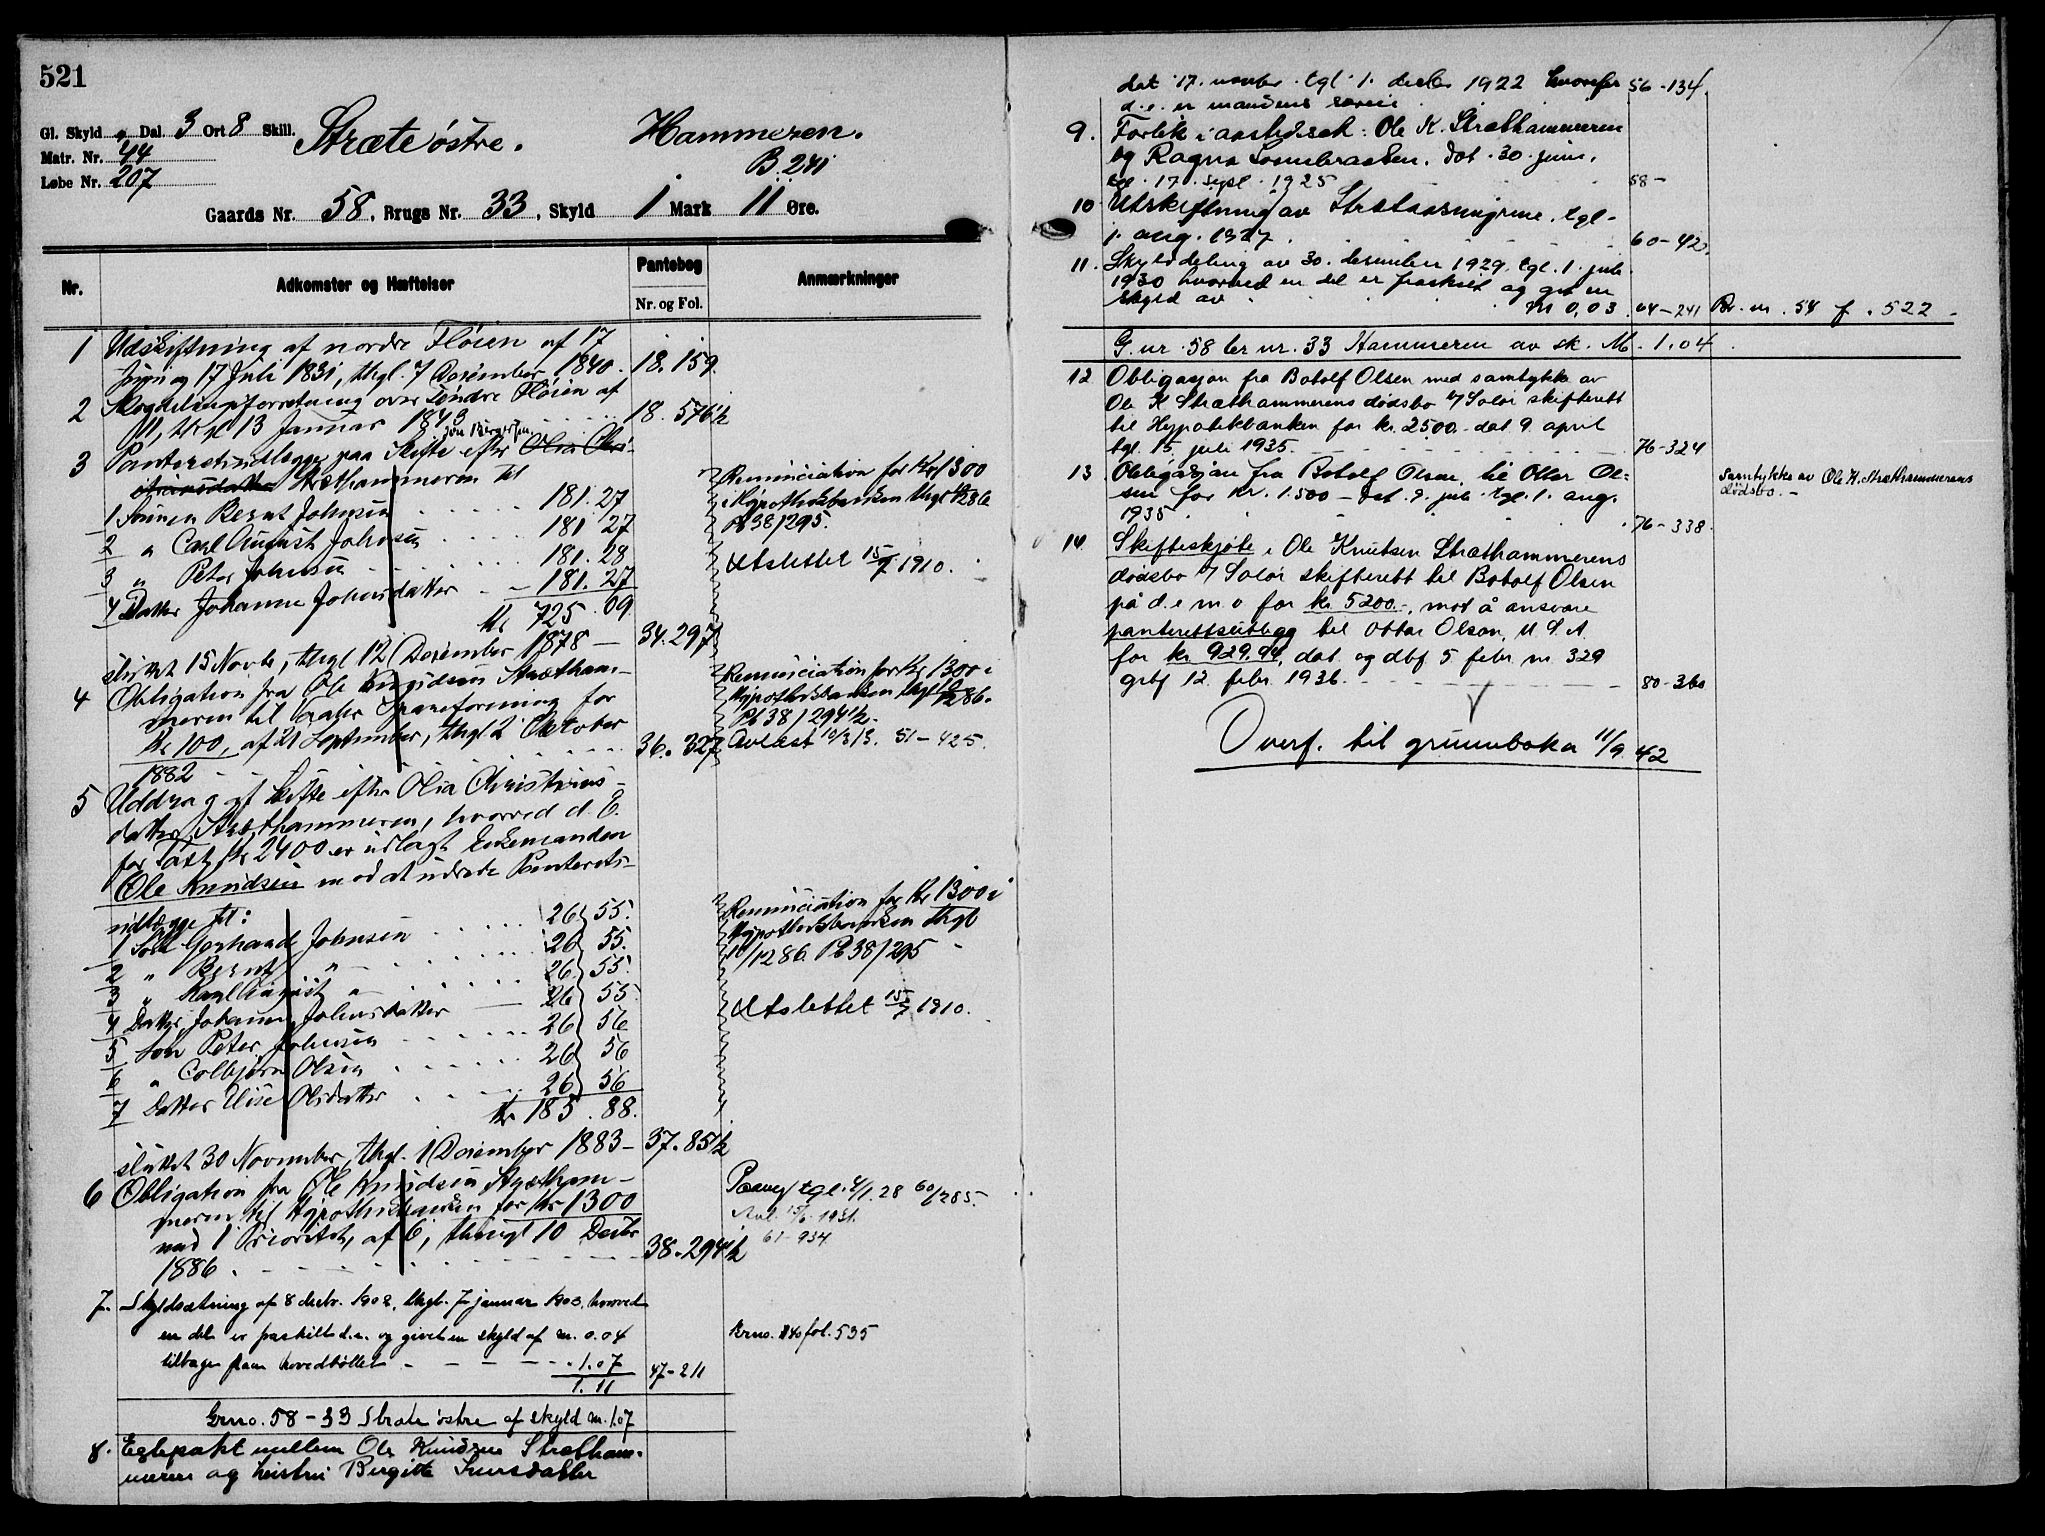 521
Gl. Skyld " Dal. 3 Ort 8 Skill.
Matr. Nr. 44
Løbe Nr. 207
Stræte østre.
Hammeren.
B. 241
Gaards Nr. 58, Brugs Nr. 33, Skyld 1 Mark 11 Øre.
Nr.
Adkomster og Hæftelser
Pantebog
Nr. og Fol.
Anmærkninger
1 Udskiftning af nordre Fløien af 17
Juni og 17 Juli 1831, thgl. 7 December 1840. 18. 159.
2 Skogdelingsforretning over søndre Fløien af
11, thgl 13 Januar 1843 18. 576½
3 Panteretsudlægge paa Skifte efter Olia Chri-
John Børgersen
stiansdatter Stræthammeren til
1 Sønnen Bernt Johnsen 181. 27
2 " Carl August Johnsen 181 27
3 " Peter Johnsen 181. 28
4 Datter Johanne Johnsdatter 181. 27
Kr 725. 09
sluttet 15 Novbr, thgl 12 December 1878 — 34. 297
Renunciation for Kr 1300
i Hypothekbanken thgl 10/12 86
Pb 38/295.
Utslettet 15/7 1910.
4 Obligation fra Ole Knudsen Strætham-
meren til Vaaler Spareforening for
Kr 100, af 21 September, thgl 2 Oktober
1882 36. 327
Renunciation for Kr 1300 i
Hypothekbanken thgl 10/12 86.
Pb 38/294½.
Avlæst 10/3 13. 51 - 425.
5 Uddrag af Skifte efter Olia Christians-
datter Stræthammeren, hvorved d. E.
for Taxt Kr 2400 er udlagt Enkemanden
Ole Knudsen mod at udrede Panterets-
udlægge til:
1 Søn Gerhard Johnsen 26 55.
2 " Bernt " 26 55.
3 " Karl August " 26 55.
4 Datter Johanne Johnsdatter 26 55.
5 Søn Peter Johnsen 26 56
6 " Colbjørn Olsen 26 56
7 Datter Elise Olsdatter 26 56
Kr 185. 88.
sluttet 30 November, thgl. 1 December 1883 - 37. 85½
Renunciation for Kr 1300 i
Hypothekbanken thgl
10/12 86. Pb 38/295
Utslettet 15/7 1910.
6 Obligation fra Ole Knudsen Strætham-
meren til Hypothekbanken for Kr 1300
med 1 Prioritet, af 6, thingl 10 Decbr
1886. 38. 294½
tgl. 4/1. 28 60/285.
61 - 934
7. Skyldsætning af 8 decbr. 1902, thgl. 7 januar 1903, hvorved
en del er fraskilt d. e. og givet en skyld af m. 0.04
tilbage paa hovedbøllet 1.07
1.11
47 - 211
Brno. 140 fol. 535
Grno. 58 - 33 Stræte østre af skyld m. 1.07
8. Egtepakt mellem Ole Knudsen Strætham-
meren og hustru Birgitte Iversdatter
dat 17. novbr. tgl. 1. decbr 1922 hvorefter 56 - 134
d. e. er mandens særeie
9. Forlik i aastedssak: Ole K. Stræthammeren
og Ragna Lommbraaten. dat. 30. juni,
tgl. 17. sept. 1925 58 -
10 Utskiftning av Strætaasungene. tgl.
1. aug. 1927 60 - 42
11. Skylddeling av 30. desember 1929. tgl. 1. juli
1930 hvorved en del er fraskilt og gitt en
skyld av m 0,03. 64 - 241 Br. nr. 54 f. 522.
G. nr. 58 br nr. 33 Hammeren av sk. M. 1.04.
12 Obligasjon fra Botolf Olsen med samtykke av
Ole K Stræthammerens dødsbo v/ Solør skifterett
til Hypotekbanken for kr. 2500.- dat 9. april
tgl. 15. juli 1935. 76 - 324
13. Obligasjon fra Botolf Olsen til Ottar Ol-
sen for kr. 1.500 - dat. 9. juli. tgl. 1. aug.
1935 76 - 338.
Samtykke av Ole K. Stræthammerens
dødsbo. -
14. Skifteskjøte i Ole Knutsen Stræthammerens
dødsbo v/ Solør skifterett til Botolf Olsen
på d. e m. o for kr. 5200.-, mot å ansvare
panterettsutlegg til Ottar Olsen, U. S. A.
for kr. 929,94, dat. og dbf 5 febr. nr. 329
grbf 12. febr. 1936. 80 - 360
Overf. til grunnboka 11/9. 42